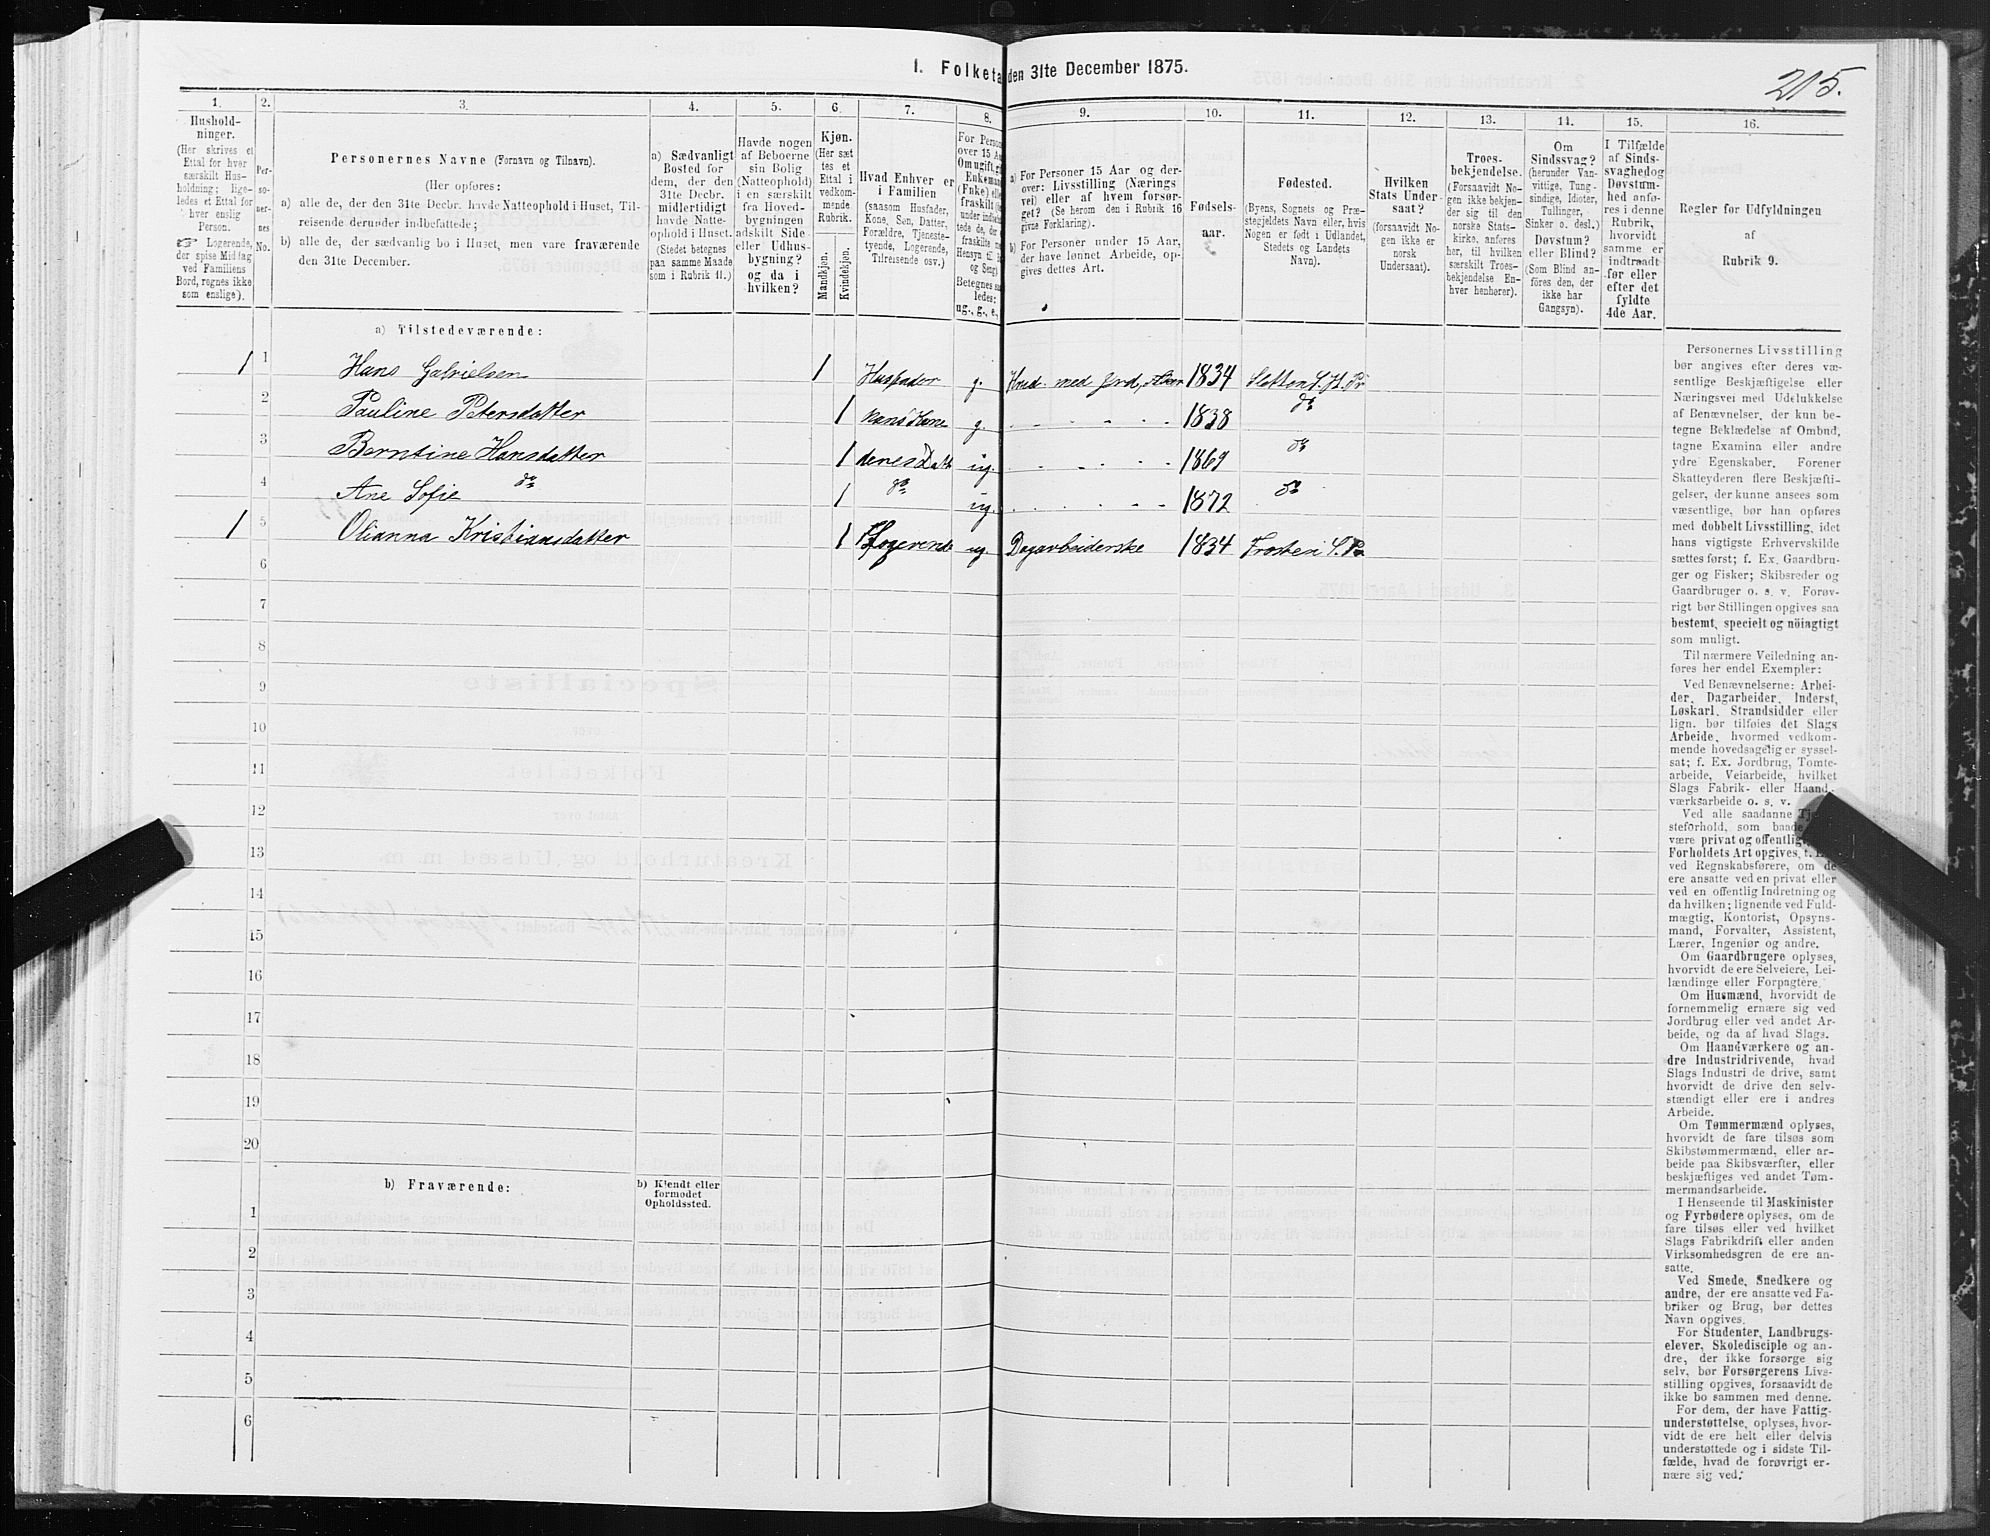 1. Folketa den 31te December 1875.
215.
1.
2.
3.
4.
5.
6.
7.
8.
9.
10.
11.
12.
13.
14.
15.
16.
Hushold-
ninger.
(Her skrives et
Ettal for hver
særskilt Hus-
holdning; lige-
ledes et Ettal for
hver enslig
Person.
☞ Logerende,
der spise Middag
ved Familiens
Bord, regnes ikke
som enslige).
Per-
so-
ner-
nes
No.
Personernes Navne (Fornavn og Tilnavn).
(Her opføres:
a) alle de, der den 31te Decbr. havde Natteophold i Huset, Til-
reisende derunder indbefattede;
b) alle de, der sædvanlig bo i Huset, men vare fraværende
den 31te December.
a) Sædvanligt
Bosted for
dem, der den
31te Decbr.
midlertidigt
havde Natte-
ophold i Huset.
(Stedet betegnes
paa samme Maade
som i Rubrik 11.)
Havde nogen
af Beboerne
sin Bolig
(Natteophold)
i en særskilt
fra Hoved-
bygningen
adskilt Side-
eller Udhus-
bygning?
og da i
hvilken?
Kjøn.
(Her sæt
tes et
Ettal i
vedkom-
mende
Rubrik.
Mandkjøn.
Kvindekjøn.
Hvad Enhver er
i Familien
(saasom Husfader,
Kone, Søn, Datter,
Forældre, Tjeneste-
tyende, Logerende,
Tilreisende osv.)
For Perso
over 15 Aa
Om ugift, g
Enkeman
(Enke) elle
fraskilt (
under indb
tede de, der
fraskilte m
Hensyn til B
og Seng)
Betegnes sa
ledes:
ug., g., e.,
a) For Personer 15 Aar og der-
over: Livsstilling (Nærings
vei) eller af hvem forsør-
get? (Se herom den i Rubrik 16
givne Forklaring).
b) For Personer under 15 Aar,
der have lønnet Arbeide, op-
gives dettes Art.
Fødsels-
aar.
Fødested.
(Byens, Sognets og Præ-
stegjeldets Navn eller, hvis
Nogen er født i Udlandet,
Stedets og Landets
Navn).
Hvilken
Stats Under-
saat?
(forsaavidt No-
gen ikke er
norsk
Undersaat).
Troes-
bekjendelse.
(Forsaavidt No-
gen ikke bekjen-
der sig til den
norske Stats-
kirke, anføres
her, til hvilken
særskilt Troes-
bekjendelse En-
hver henhører).
Om
Sindssvag?
(herunder Van-
vittige, Tung-
sindige, Idioter,
Tullinger,
Sinker o. desl.)
Døvstum?
eller Blind?
(Som Blind an-
føres den, der
ikke har
Gangsyn).
I Tilfælde
af Sinds-
svaghed og
Døvstum-
hed anfø-
res i denne
Rubrik,
hvorvidt
samme er
indtraadt
før eller
efter det
fyldte
4de Aar.
Regler for Udfyldningen
af
Rubrik 9.
a) Tilstedeværende:
1 1 Hans Gabrielsen 1 Husfader g. Husd. med Jord, 1834
2 Pauline Petersdatter 1 hans Kone g. 1838 do
3 Berntine Hansdatter 1 deres Datt ug. 1869 do
4 Ane Sofie do 1 do ug. 1872 do
1 5 Olianna Kristiansdatter 1 Logerende ug Dagarbeiderske 1834
6
7
8
9
10
11
12
13
14
15
16
17
18
19
20
b) Fraværende:
b) Kjendt eller
formodet
Opholdssted.
1
2
3
4
5
6
Personernes Livsstilling
bør angives efter deres væ-
sentlige Beskjæftigelse eller
Næringsvei med Udelukkelse
af Benævnelser, der kun be-
tegne Beklædelse af Ombud,
tagne Examina eller andre
ydre Egenskaber. Forener
Skatteyderen flere Beskjæfti-
gelser, der kunne ansees som
væsentlige, bør han opføres
med dobbelt Livsstilling, idet
hans vigtigste Erhvervskilde
sættes først; f. Ex. Gaardbru-
ger og Fisker; Skibsreder og
Gaardbruger o. s. v. Forøv-
rigt bør Stillingen opgives saa
bestemt, specielt og nöiagtigt
som muligt.
Til nærmere Veiledning an-
føres her endel Exempler:
Ved Benævnelserne: Arbei-
der, Dagarbeider, Inderst,
Løskarl, Strandsidder eller
lign. bør tilføies det Slags
Arbeide, hvormed vedkom-
mende hovedsagelig er syssel-
sat; f. Ex. Jordbrug, Tomte-
arbeide, Veiarbeide, hvilket
Slags Fabrik- eller Haand-
værksarbeide o. s. v.
Ved alle saadanne Tj
steforhold, som baade
være privat og offentlig
Forholdets Art opgives, t.
ved Regnskabsførere, om de
ere ansatte ved en privat eller
ved en offentlig Indretning og
da hvilken; lignende ved Fuld-
mægtig, Kontorist, Opsyns-
mand, Forvalter, Assistent,
Lærer, Ingeniør og andre.
Om Gaardbrugere oplyses,
hvorvidt de ere Selveiere, Lei-
lændinge eller Forpagtere.
Om Husmænd, hvorvidt de
fornemmelig ernære sig ved
Jordbrug eller ved andet Ar-
beide, og da af hvad Slags.
Om Haandværkere og an-
dre Industridrivende, hvad
Slags Industri de drive, samt
hvorvidt de drive den selv-
stændigt eller ere i andres
Arbeide.
Om Tømmermænd oplyses,
hvorvidt de fare tilsøs som
Skibstømmermænd, eller ar-
beide paa Skibsværfter, eller
beskjæftiges ved andet Tøm-
mermandsarbeide.
I Henseende til Maskinister
og Fyrbødere oplyses, om de
fare tilsøs eller ved hvilket
Slags Fabrikdrift eller anden
Virksomhedsgren de ere an-
satte.
Ved Smede, Snedkere og
andre, der ere ansatte ved Fa-
briker og Brug, bør dettes
Navn opgives.
For Studenter, Landbrugs-
elever, Skoledisciple og an-
dre, der ikke forsørge sig
selv, bør Forsørgerens Livs-
stilling opgives, forsaavidt de
ikke bo sammen med denne.
For dem, der have Fattig-
understøttelse, oplyses, hvor-
vidt de ere helt eller delvis
understøttede og i sidste Til-
fælde, hvad de forøvrigt er-
nære sig ved.